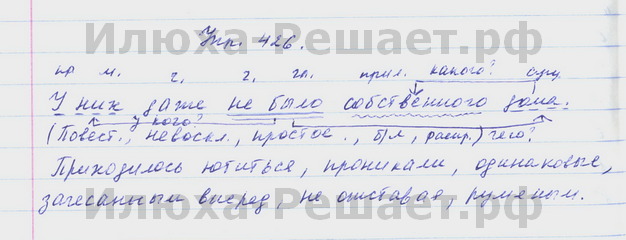 Илюха-Решает.рф
Упр. 426.
пр м. ч. г. гл. прил. какого? сущ
У них даже не было собственного дома.
у кого?
(Повест., невоскл., простое., б/л, распр.) чего?
Приходилось ютиться, проникали, одинаковые,
загесанным вперед, не отставая, румяным.
Илюха-Решает.рф